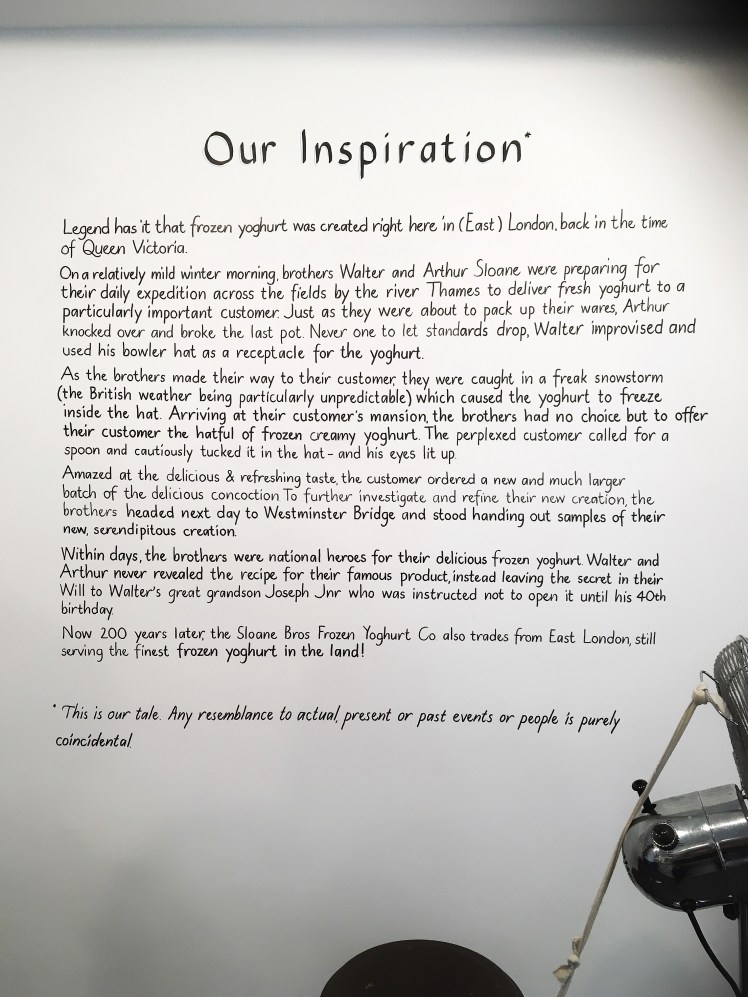 Our Inspiration*
Legend has it that frozen yoghurt was created right here in (East) London, back in the time
of Queen Victoria.
On a relatively mild winter morning, brothers Walter and Arthur Sloane were preparing for
their daily expedition across the fields by the river Thames to deliver fresh yoghurt to a
particularly important customer. Just as they were about to pack up their wares, Arthur
knocked over and broke the last pot. Never one to let standards drop, Walter improvised and
used his bowler hat as a receptacle for the yoghurt.
As the brothers made their way to their customer, they were caught in a freak snowstorm
(the British weather being particularly unpredictable) which caused the yoghurt to freeze
inside the hat. Arriving at their customer's mansion, the brothers had no choice but to offer
their customer the hatful of frozen creamy yoghurt. The perplexed customer called for a
spoon and cautiously tucked it in the hat - and his eyes lit up.
Amazed at the delicious & refreshing taste, the customer ordered a new and much larger
batch of the delicious concoction. To further investigate and refine their new creation, the
brothers headed next day to Westminster Bridge and stood handing out samples of their
new, serendipitous creation.
Within days, the brothers were national heroes for their delicious frozen yoghurt. Walter and
Arthur never revealed the recipe for their famous product, instead leaving the secret in their
Will to Walter's great grandson Joseph Jnr who was instructed not to open it until his 40th
birthday.
Now 200 years later, the Sloane Bros Frozen Yoghurt Co also trades from East London, still
serving the finest frozen yoghurt in the land!
* This is our tale. Any resemblance to actual, present or past events or people is purely
coincidental.